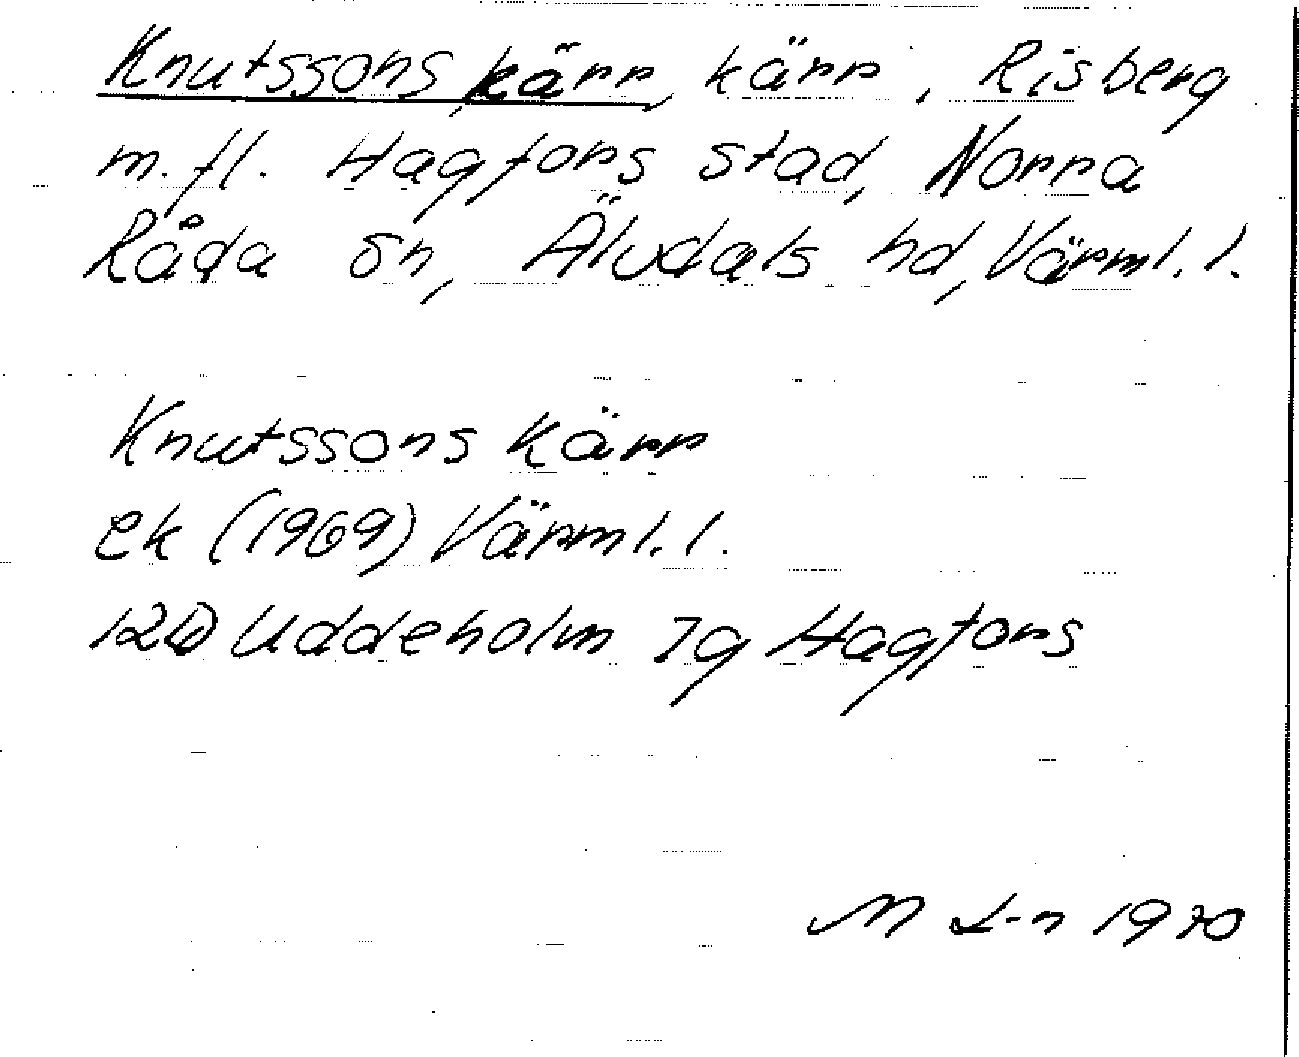 Knutssons kärr, kärr, Risberg
m.fl. Hagfors stad, Norra
Råda sn, Älvdals hd, Värml.l.
Knutssons kärr
ek (1969) Värml.l.
12D Uddeholm 7g Hagfors
M L-n 1970